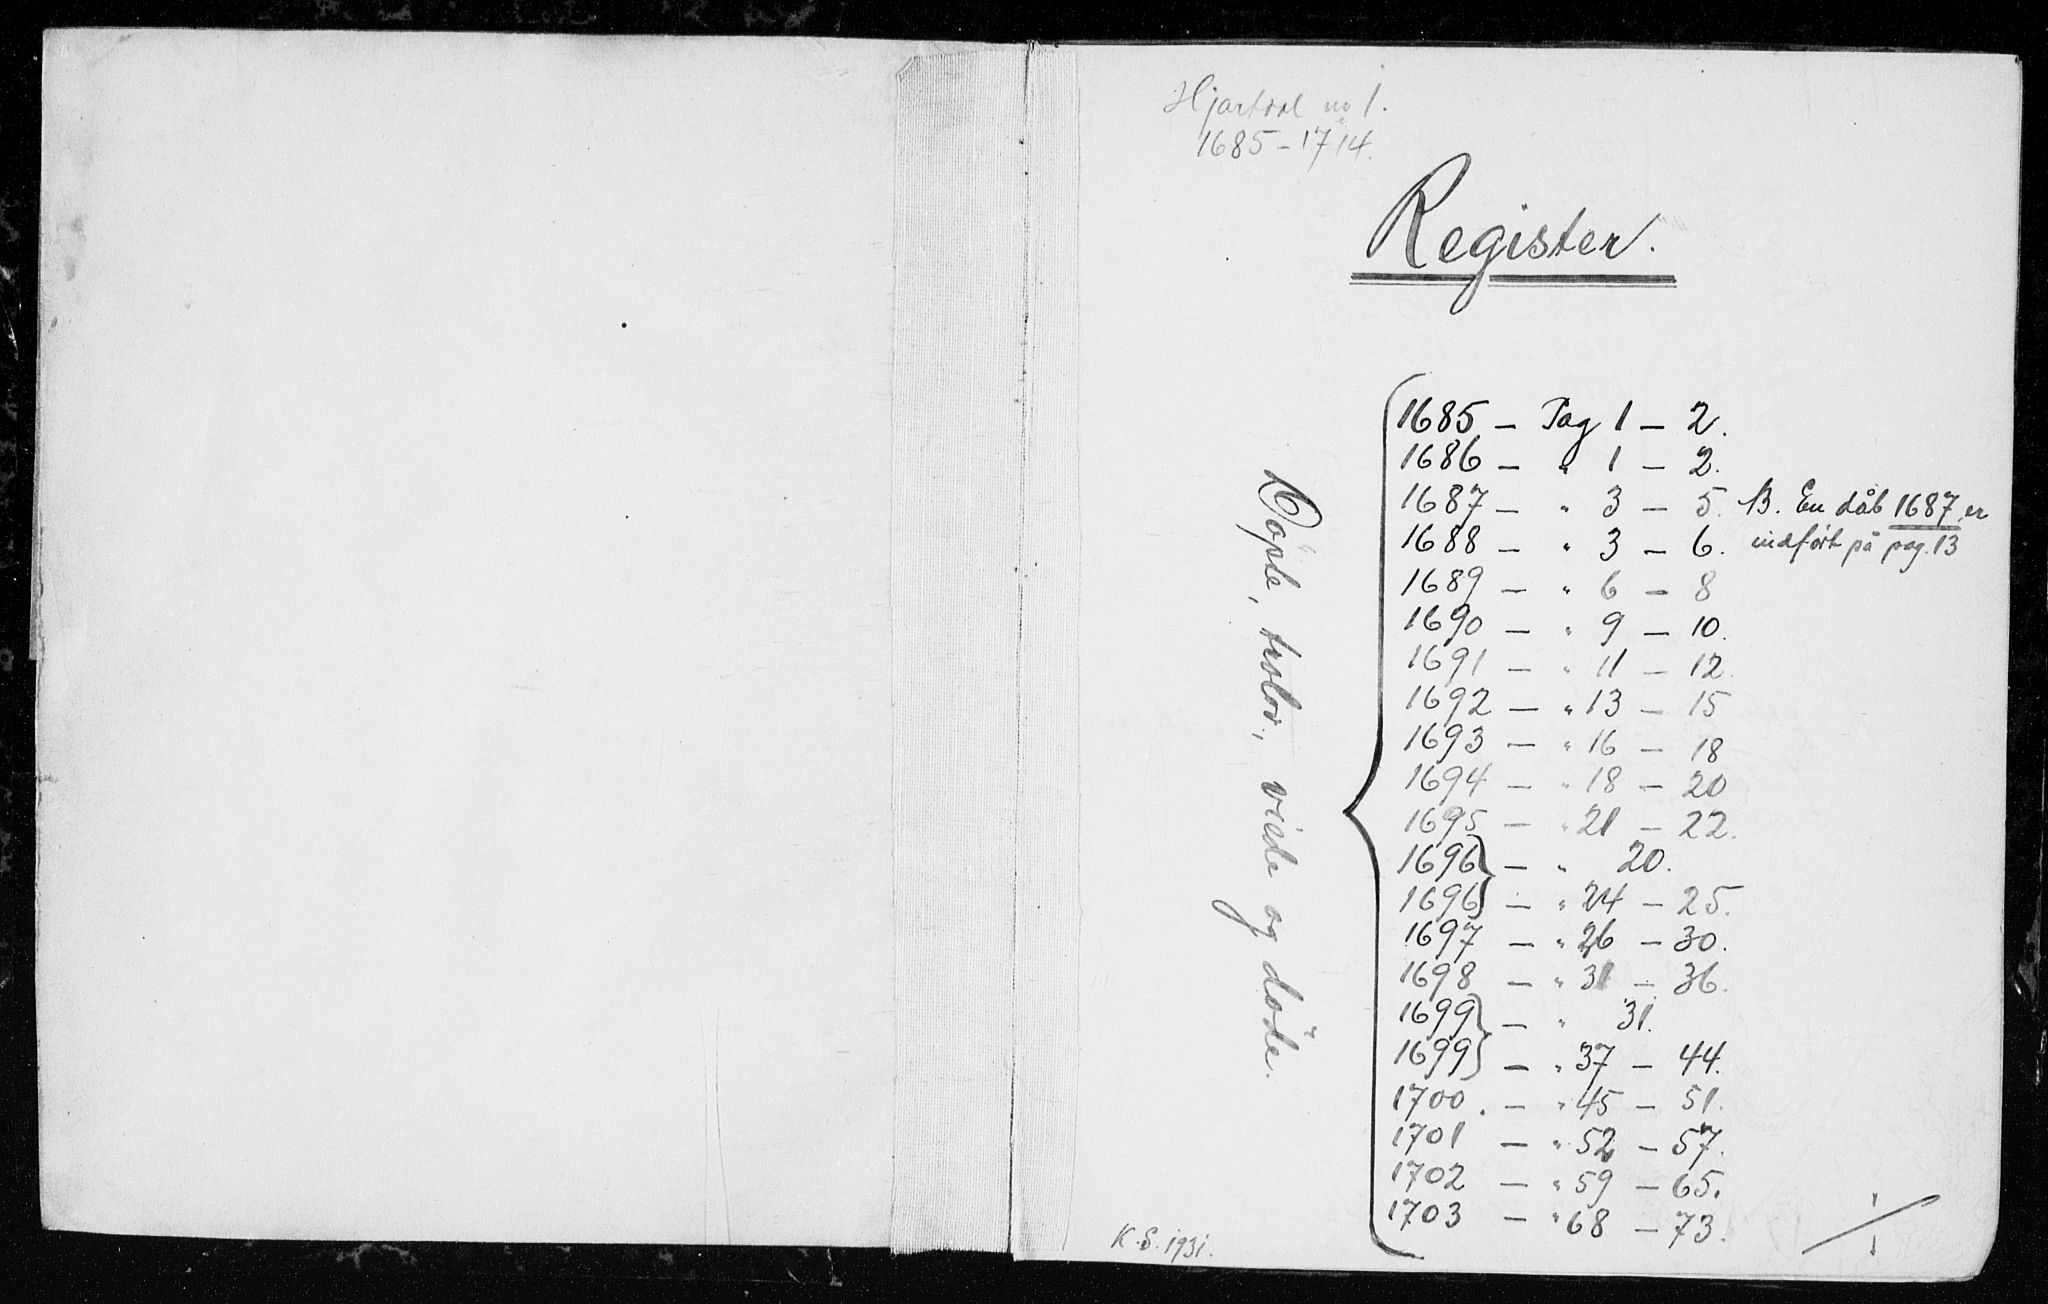 Hjartdal no 1.
1685-1714.
Register.
Døpte, trolov., viede og døde.
1685 - Pag 1 - 2.
1686 - " 1 - 2.
1687 - " 3 - 5. B. En dåb 1687 er
1688 - " 3 - 6. indført på pag. 13
1689 - " 6 - 8
1690 - " 9 - 10.
1691 - " 11 - 12.
1692 - " 13 - 15
1693 - " 16 - 18
1694 - " 18 - 20
1695 - " 21 - 22.
1696} - " 20.
1696} - " 24 - 25.
1697 - " 26 - 30.
1698 - " 31 - 36.
1699} - " 31.
1699} - " 37 - 44.
1700. - " 45 - 51.
1701 - " 52 - 57.
1702 - " 59 - 65.
1703 - " 68 - 73.
K.S. 1931.